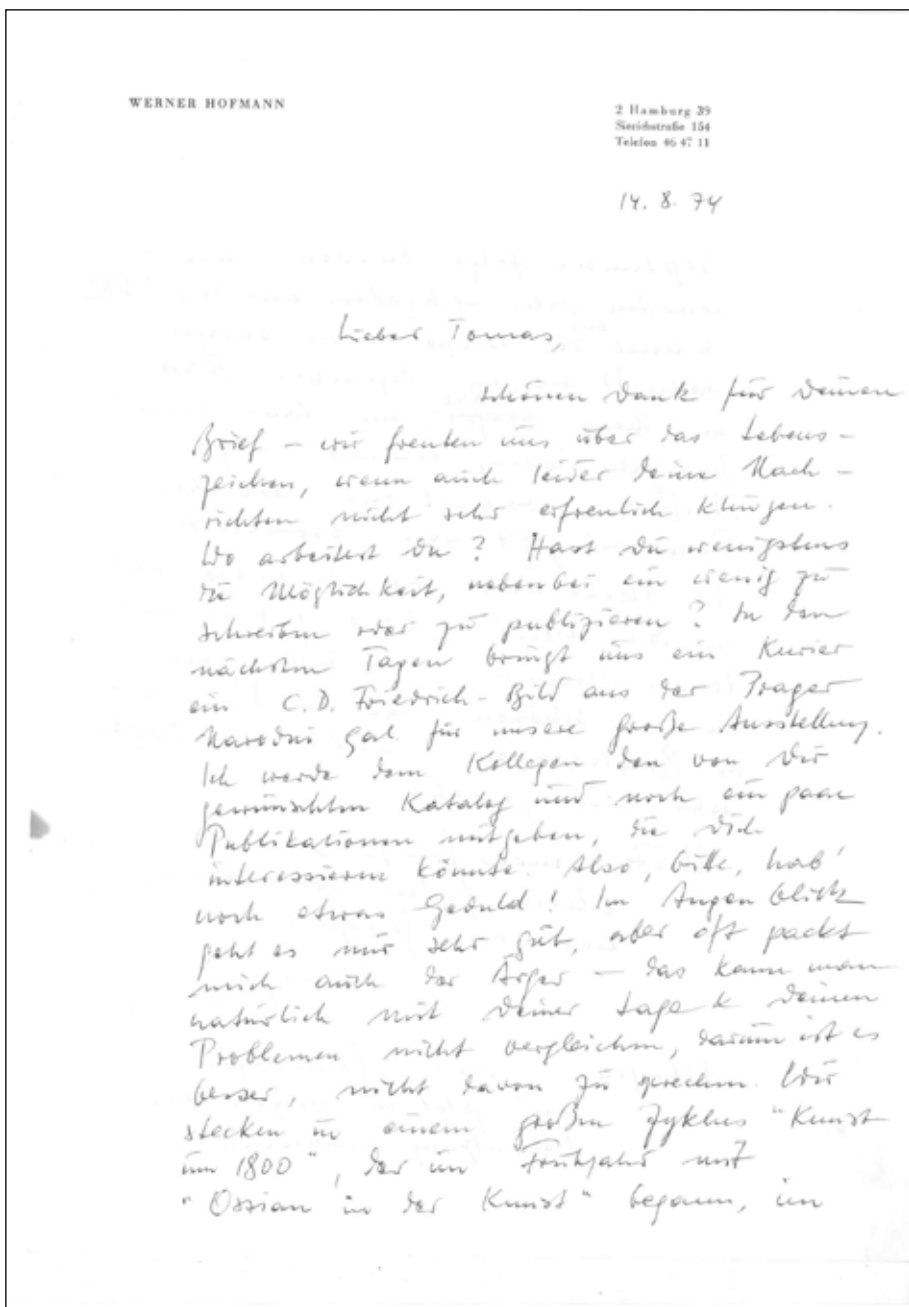 WERNER HOFMANN
2 Hamburg 39
Sierichstraße 154
Telefon 46 47 11
14. 8. 74
Lieber Tomas,
schönen Dank für Deinen
Brief – wir freuten uns über das Lebens-
zeichen, wenn auch leider deine Nach-
richten nicht sehr erfreulich klingen.
Wo arbeitest Du? Hast Du wenigstens
die Möglichkeit, nebenbei ein wenig zu
schreiben oder zu publizieren? In den
nächsten Tagen bringt uns ein Kurier
ein C.D. Friedrich-Bild aus der Prager
Narodni Gal. für unsere große Ausstellung.
Ich werde dem Kollegen den von Dir
gewünschten Katalog und noch ein paar
Publikationen mitgeben, die Dich
interessieren könnte. Also, bitte, hab'
noch etwas Geduld! Im Augenblick
geht es mir sehr gut, aber oft packt
mich auch der Ärger – das kann man
natürlich mit Deiner Lage & Deinen
Problemen nicht vergleichen, darum ist es
besser, nicht davon zu sprechen. Wir
stecken in einem großen Zyklus "Kunst
um 1800", der im Frühjahr mit
"Ossian in der Kunst" begann, im